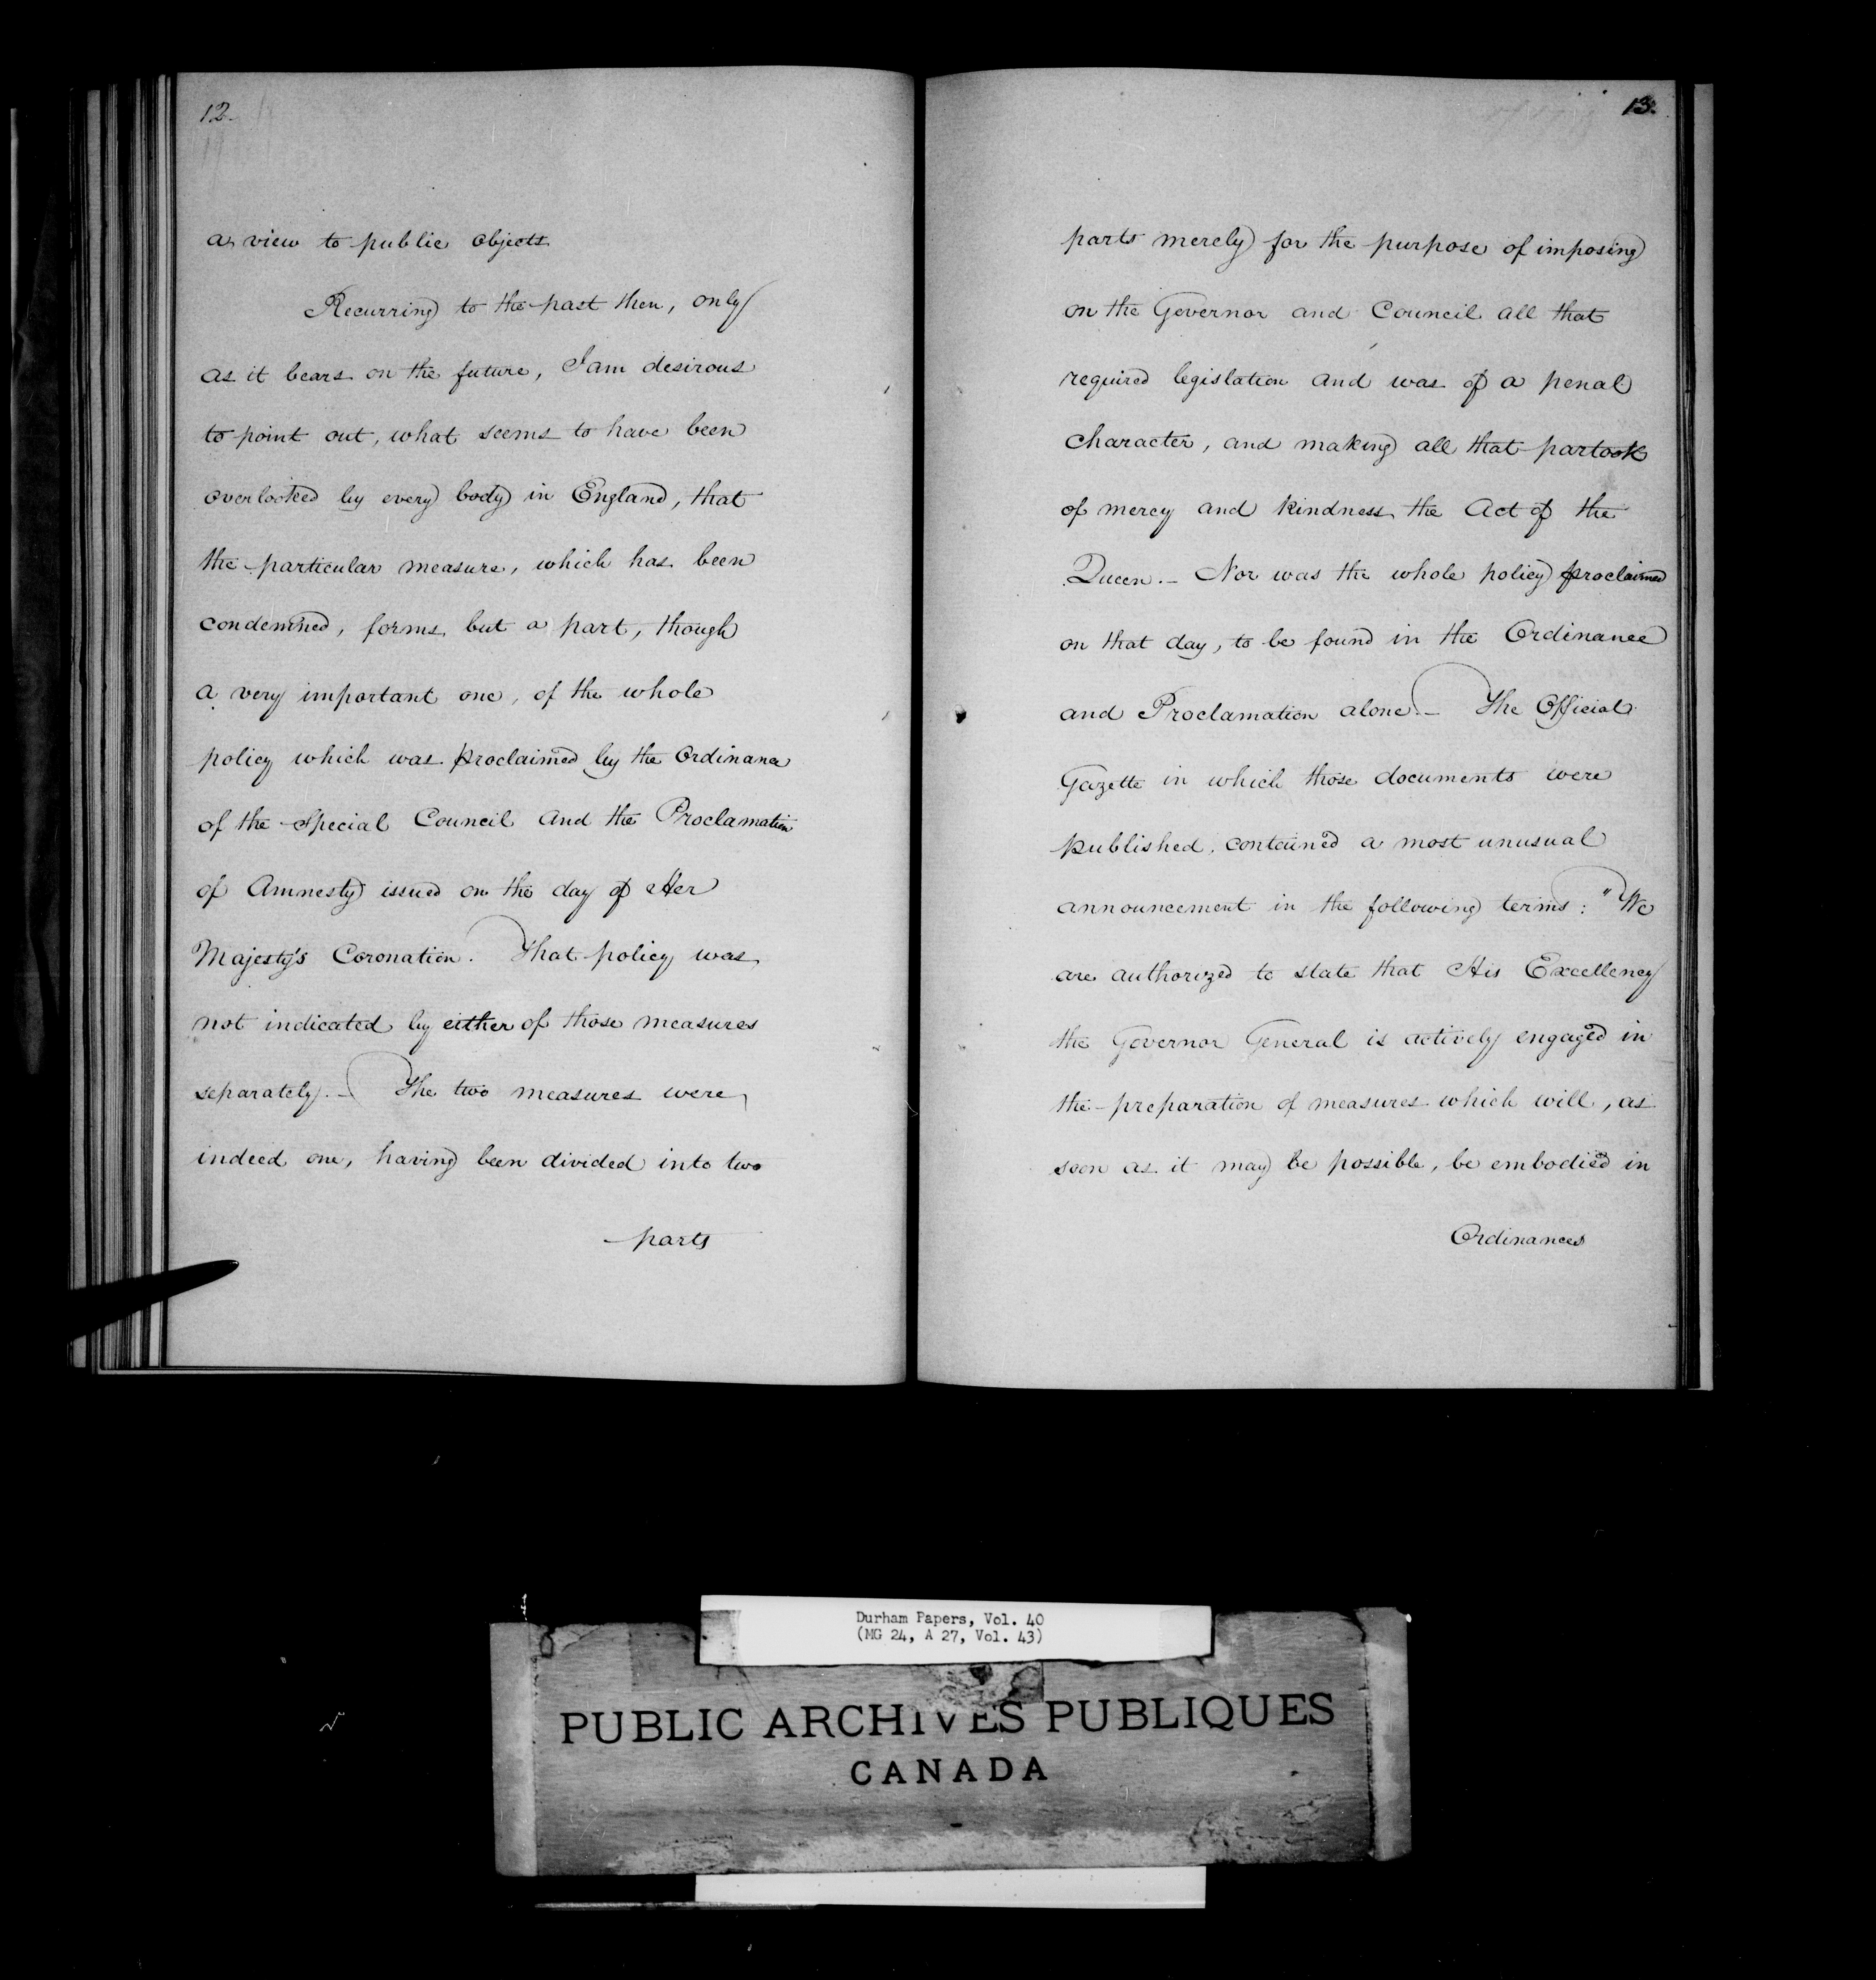 12.
a view to public objects
Recurring to the past then, only
as it bears on the future, I am desirous
to point out, what seems to have been
overlooked by every body in England, that
the particular measure, which has been
condemned, forms but a part, though
a very important one, of the whole
policy which was proclaimed by the Ordinance
of the Special Council and the Proclamation
of Amnesty issued on the day of Her
Majesty's Coronation. That policy was
not indicated by either of those measures
separately. — The two measures were,
indeed one, having been divided into two
parts
13.
parts merely for the purpose of imposing
on the Governor and Council all that
required legislation and was of a penal
character, and making all that partook
of mercy and kindness the Act of the
Queen. — Nor was the whole policy proclaimed
on that day, to be found in the Ordinance
and Proclamation alone. — The Official
Gazette in which those documents were
published, contained a most unusual
announcement in the following terms: "We
are authorized to state that His Excellency
the Governor General is actively engaged in
the preparation of measures which will, as
soon as it may be possible, be embodied in
Ordinances
Durham Papers, Vol. 40
(MG 24, A 27, Vol. 43)
PUBLIC ARCHIVES PUBLIQUES
CANADA